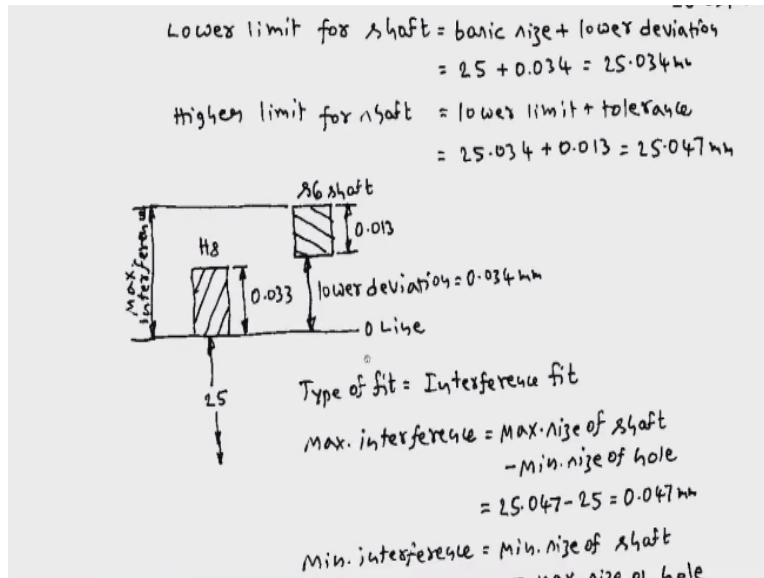 Lower limit for shaft = basic size + lower deviation
= 25 + 0.034 = 25.034 mm
Higher limit for shaft = lower limit + tolerance
= 25.034 + 0.013 = 25.047 mm
s6 shaft
0.013
H8
Max. interference
0.033
lower deviation = 0.034 mm
0 Line
25
Type of fit = Interference fit
Max. interference = Max. size of shaft
- Min. size of hole
= 25.047 - 25 = 0.047 mm
Min. interference = Min. size of shaft
- Max size of hole